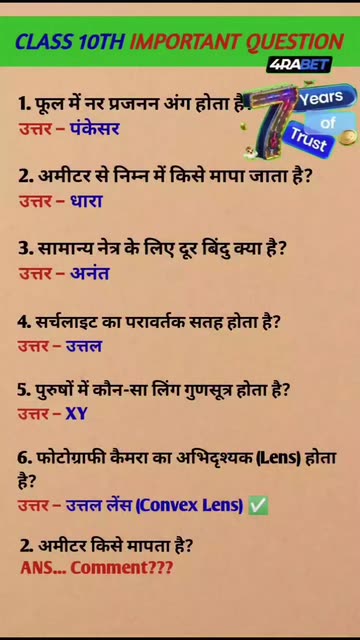 CLASS 10TH IMPORTANT QUESTION
4RABET
7 Years
of
Trust
1. फूल में नर प्रजनन अंग होता है
उत्तर – पंकेसर
2. अमीटर से निम्न में किसे मापा जाता है?
उत्तर – धारा
3. सामान्य नेत्र के लिए दूर बिंदु क्या है?
उत्तर – अनंत
4. सर्चलाइट का परावर्तक सतह होता है?
उत्तर – उत्तल
5. पुरुषों में कौन-सा लिंग गुणसूत्र होता है?
उत्तर – XY
6. फोटोग्राफी कैमरा का अभिदृश्यक (Lens) होता
है?
उत्तर – उत्तल लेंस (Convex Lens) ✅
2. अमीटर किसे मापता है?
ANS... Comment???